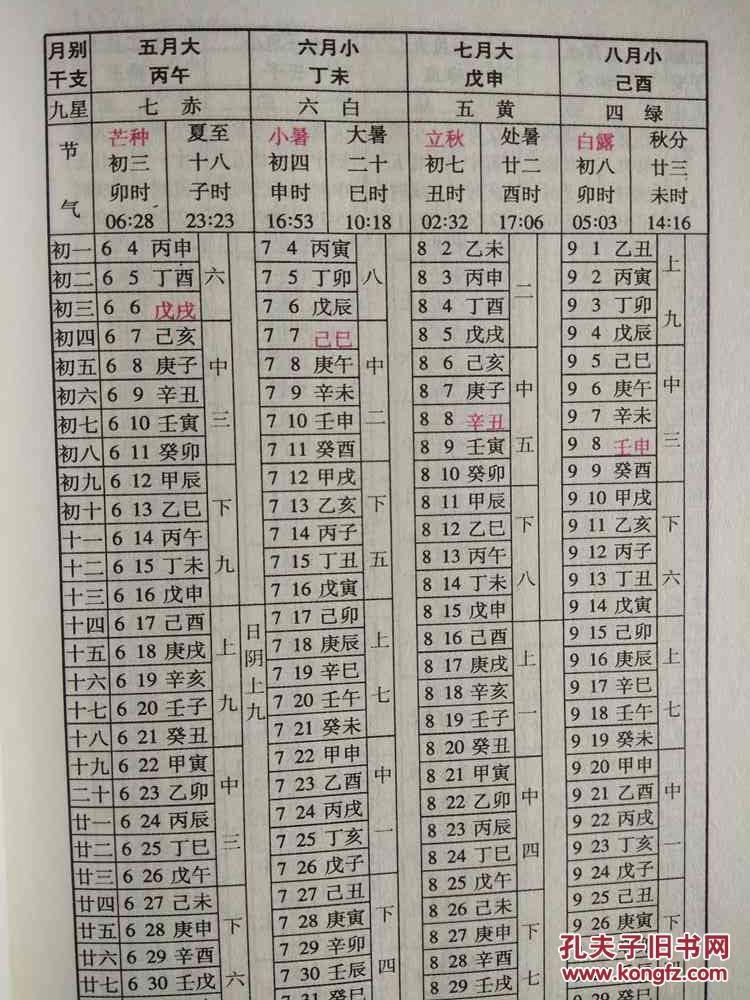 月别 五月大 六月小 七月大 八月小
干支 丙午 丁未 戊申 己酉
九星 七赤 六白 五黄 四绿
节 芒种 夏至 小暑 大暑 立秋 处暑 白露 秋分
初三 十八 初四 二十 初七 廿二 初八 廿三
卯时 子时 申时 巳时 丑时 酉时 卯时 未时
气 06:28 23:23 16:53 10:18 02:32 17:06 05:03 14:16
初一 6 4 丙申 7 4 丙寅 8 2 乙未 9 1 乙丑 上
初二 6 5 丁酉 六 7 5 丁卯 八 8 3 丙申 二 9 2 丙寅
初三 6 6 戊戌 7 6 戊辰 8 4 丁酉 9 3 丁卯 九
初四 6 7 己亥 7 7 己巳 8 5 戊戌 9 4 戊辰
初五 6 8 庚子 中 7 8 庚午 中 8 6 己亥 中 9 5 己巳 中
初六 6 9 辛丑 7 9 辛未 8 7 庚子 9 6 庚午
初七 6 10 壬寅 三 7 10 壬申 二 8 8 辛丑 五 9 7 辛未 三
初八 6 11 癸卯 7 11 癸酉 8 9 壬寅 9 8 壬申
初九 6 12 甲辰 7 12 甲戌 8 10 癸卯 9 9 癸酉
初十 6 13 乙巳 下 7 13 乙亥 下 8 11 甲辰 下 9 10 甲戌 下
十一 6 14 丙午 7 14 丙子 8 12 乙巳 9 11 乙亥
十二 6 15 丁未 九 7 15 丁丑 五 8 13 丙午 八 9 12 丙子 六
十三 6 16 戊申 7 16 戊寅 8 14 丁未 9 13 丁丑
十四 6 17 己酉 日 7 17 己卯 8 15 戊申 9 14 戊寅
十五 6 18 庚戌 上 阴 7 18 庚辰 上 8 16 己酉 上 9 15 己卯 上
十六 6 19 辛亥 上 7 19 辛巳 8 17 庚戌 9 16 庚辰
十七 6 20 壬子 九 九 7 20 壬午 七 8 18 辛亥 一 9 17 辛巳 七
十八 6 21 癸丑 7 21 癸未 8 19 壬子 9 18 壬午
十九 6 22 甲寅 7 22 甲申 8 20 癸丑 9 19 癸未
二十 6 23 乙卯 中 7 23 乙酉 中 8 21 甲寅 中 9 20 甲申 中
廿一 6 24 丙辰 7 24 丙戌 8 22 乙卯 9 21 乙酉
廿二 6 25 丁巳 三 7 25 丁亥 一 8 23 丙辰 四 9 22 丙戌 一
廿三 6 26 戊午 7 26 戊子 8 24 丁巳 9 23 丁亥
廿四 6 27 己未 7 27 己丑 8 25 戊午 9 24 戊子
廿五 6 28 庚申 下 7 28 庚寅 下 8 26 己未 下 9 25 己丑 下
廿六 6 29 辛酉 7 29 辛卯 8 27 庚申 9 26 庚寅
廿七 6 30 壬戌 六 7 30 壬辰 四 8 28 辛酉 七
7 31 8 29 壬戌
孔夫子旧书网
www.kongfz.com